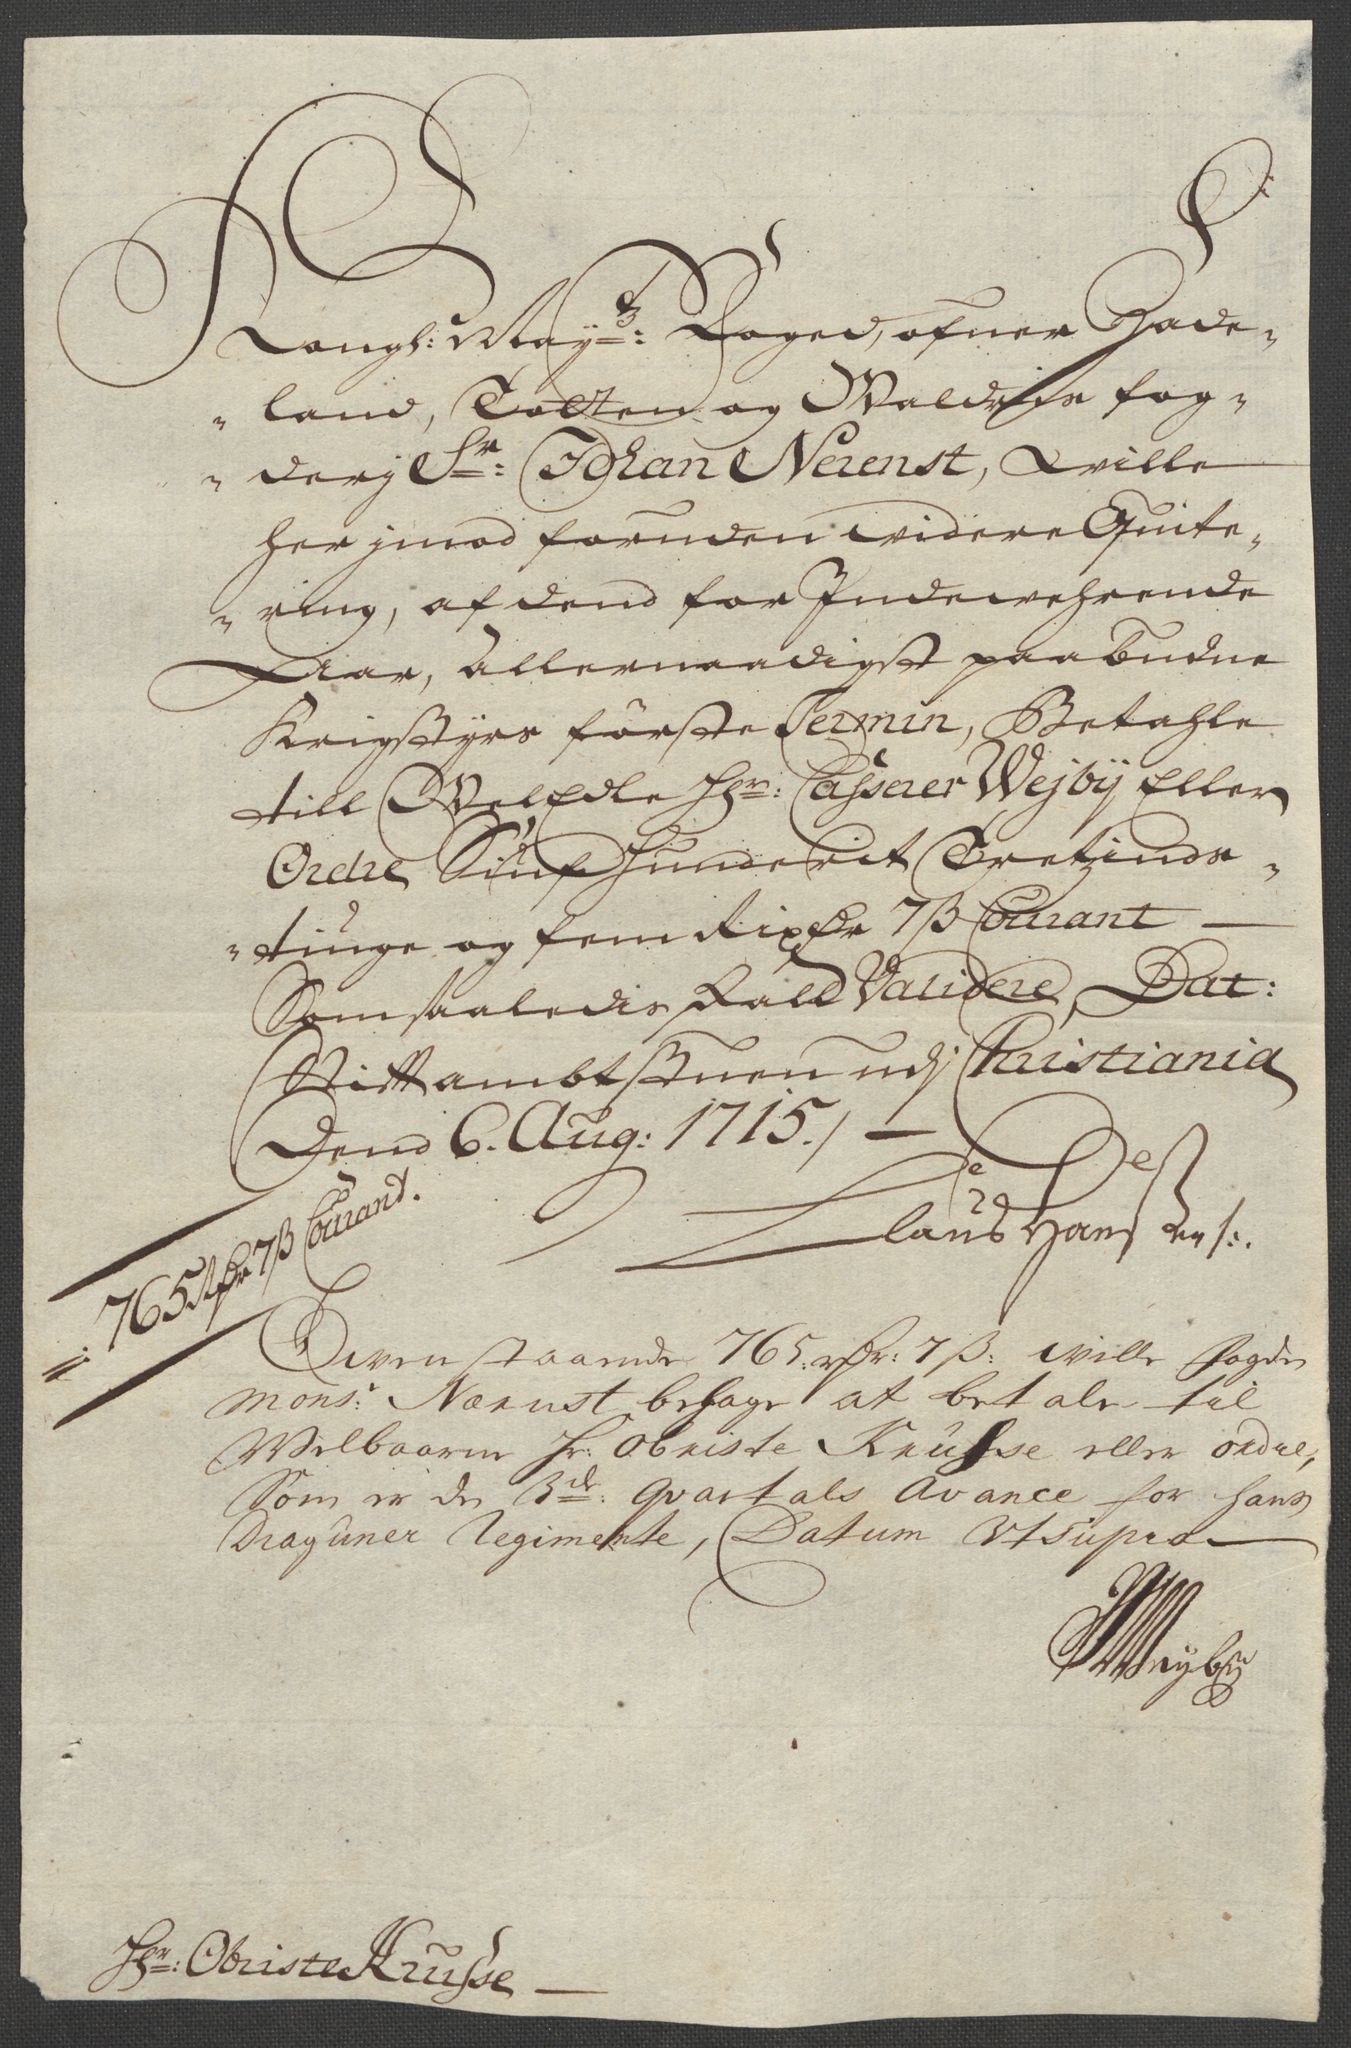 Kongl: May:tz: Foged, ofver Hade-
-land, Totten og Waldrifs fog-
-derj Sr: Johan Nerenst, Wille
her jmod foruden widere Quite-
-ring, af dend for Indewehrende
Aar, Allernaadigst paabudne
Krigsstyrs förste Termin, Betahle
till WelEdle Hr: Casserer Wejbÿ Eller
Ordre Siuf Hunderit Tretzinds-
-tiuge og fem Rixdr 7 ß Courant —
Som saaledis skall Validere, Dat:
Stittambtstuen udj Christiania
Dend 6. Aug: 1715./ —
Claus Hanß
//: 765 Rdr 7 ß Courant.
Ovenstaaende 765: rdr: 7 ß: wille fogden
Mons:r Nærnst behage at betale til
Welbaarne Hr: Obriste Krüsse eller ordre,
Som er de 3de: Qvartals Avance for hans
Dragüner Regimente, Datum Ut Supra
Weyby
Hr: Obriste Krusse —